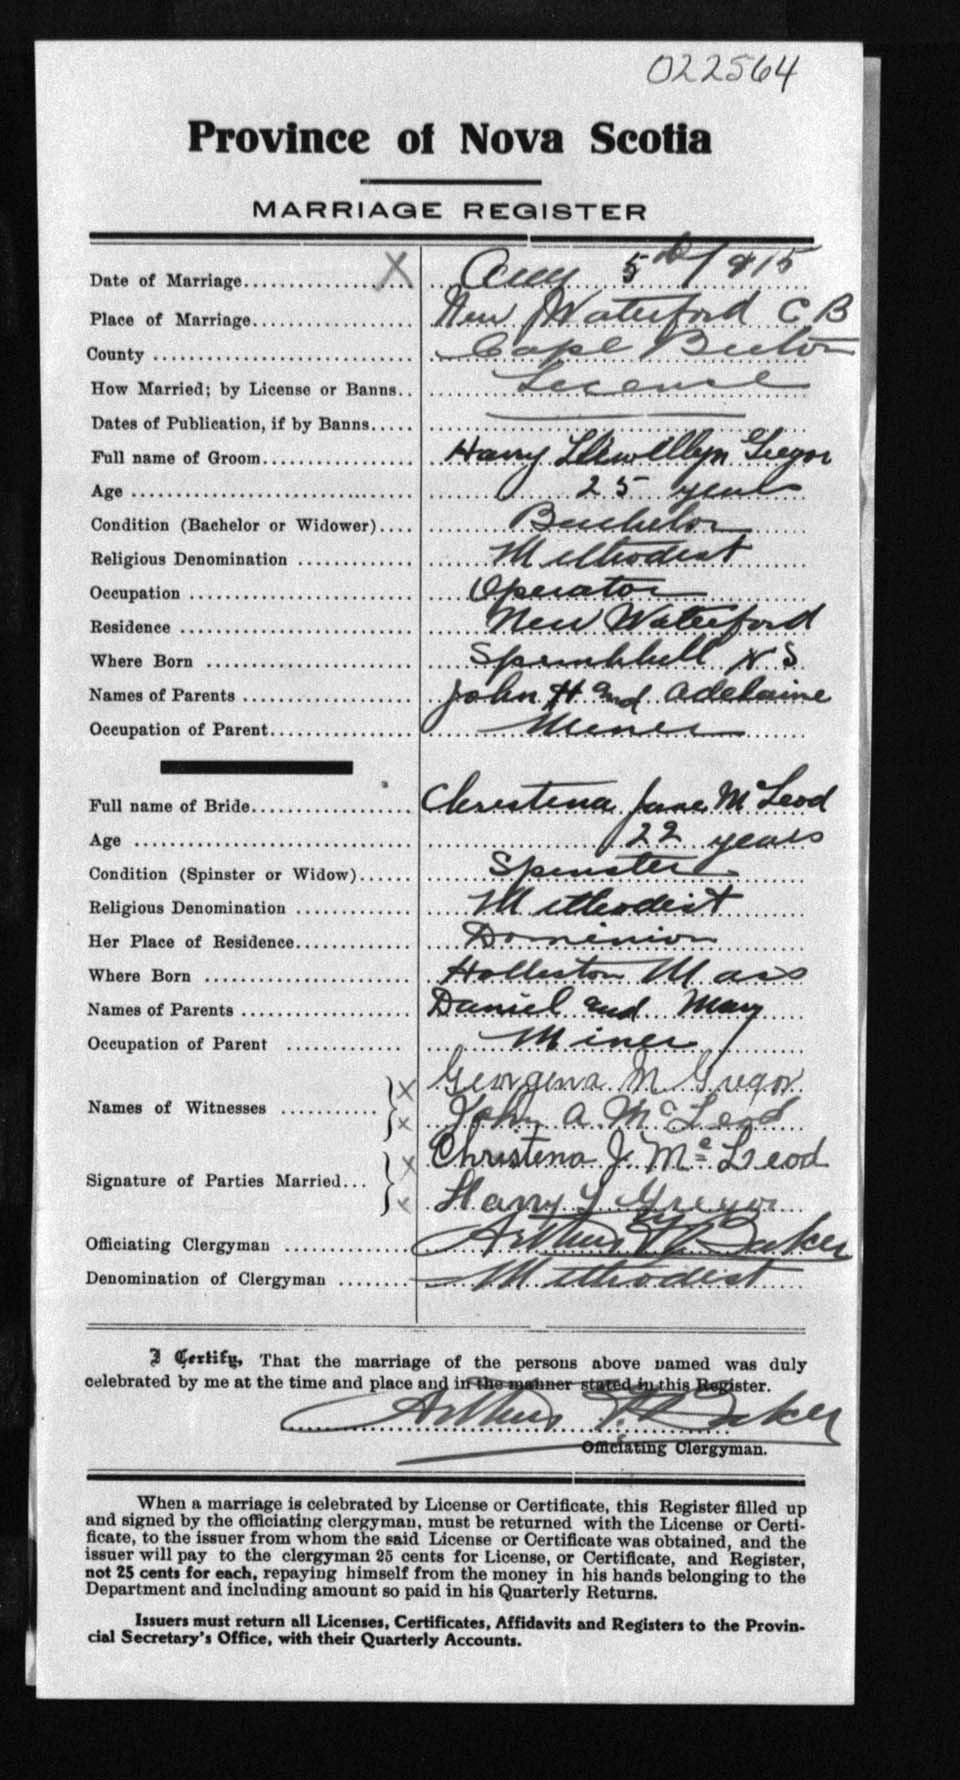 022564
Province of Nova Scotia
MARRIAGE REGISTER
Date of Marriage 5th 1915
Place of Marriage New Waterford C B
County Cape Breton
How Married; by License or Banns License
Dates of Publication, if by Banns
Full name of Groom Harry Llewellyn Gregor
Age 25 years
Condition (Bachelor or Widower) Bachelor
Religious Denomination Methodist
Occupation Operator
Residence New Waterford
Where Born Springhill N S
Names of Parents John H and Adelaine
Occupation of Parent Miner
Full name of Bride Christena Jane McLeod
Age 22 years
Condition (Spinster or Widow) Spinster
Religious Denomination Methodist
Her Place of Residence Dominion
Where Born Holleston Mass
Names of Parents Daniel and Mary
Occupation of Parent Miner
Names of Witnesses x Georgena M Gregor
x John A McLeod
Signature of Parties Married x Christena J. McLeod
x Harry L Gregor
Officiating Clergyman Arthur Baker
Denomination of Clergyman Methodist
I Certify, That the marriage of the persons above named was duly
celebrated by me at the time and place and in the manner stated in this Register.
Arthur Baker
Officiating Clergyman.
When a marriage is celebrated by License or Certificate, this Register filled up
and signed by the officiating clergyman, must be returned with the License or Certi-
ficate, to the issuer from whom the said License or Certificate was obtained, and the
issuer will pay to the clergyman 25 cents for License, or Certificate, and Register,
not 25 cents for each, repaying himself from the money in his hands belonging to the
Department and including amount so paid in his Quarterly Returns.
Issuers must return all Licenses, Certificates, Affidavits and Registers to the Provin-
cial Secretary's Office, with their Quarterly Accounts.